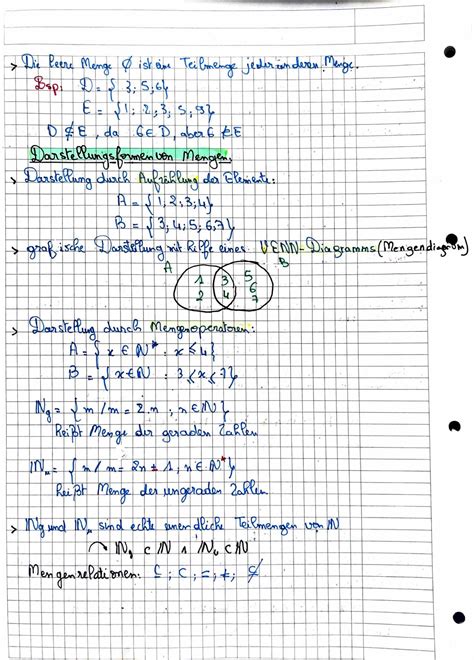 > Die leere Menge ∅ ist eine Teilmenge jeder anderen Menge.
Bsp: D = { 3; 5; 6}
E = {1; 2; 3; 5; 9}
D ⊄ E, da 6 ∈ D, aber 6 ∉ E
Darstellungsformen von Mengen.
> Darstellung durch Aufzählung der Elemente:
A = {1; 2; 3; 4}
B = {3; 4; 5; 6; 7}
> grafische Darstellung mit hilfe eines VENN-Diagramms (Mengendiagramm)
A B
1 3 5
2 4 6
7
> Darstellung durch Mengenoperatoren:
A = { x ∈ N* : x ≤ 4}
B = {x ∈ N : 3 ≤ x ≤ 7}
Ng = { m / m = 2·n ; n ∈ N}
heißt Menge der geraden Zahlen
Nu = { m / m = 2n ± 1; n ∈ N*}
heißt Menge der ungeraden Zahlen
> Ng und Nu sind echte unendliche Teilmengen von N
Ng ⊂ N ∧ Nu ⊂ N
Mengenrelationen: ⊆ ; ⊂ ; = ; ≠ ; ⊄